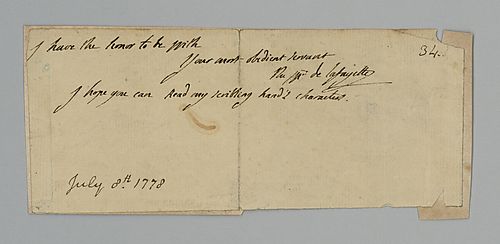 I have the honor to be with
34.
Your most obedient servant
the Mis de lafayette
I hope you can read my writting hand's characters.
July 8th 1778